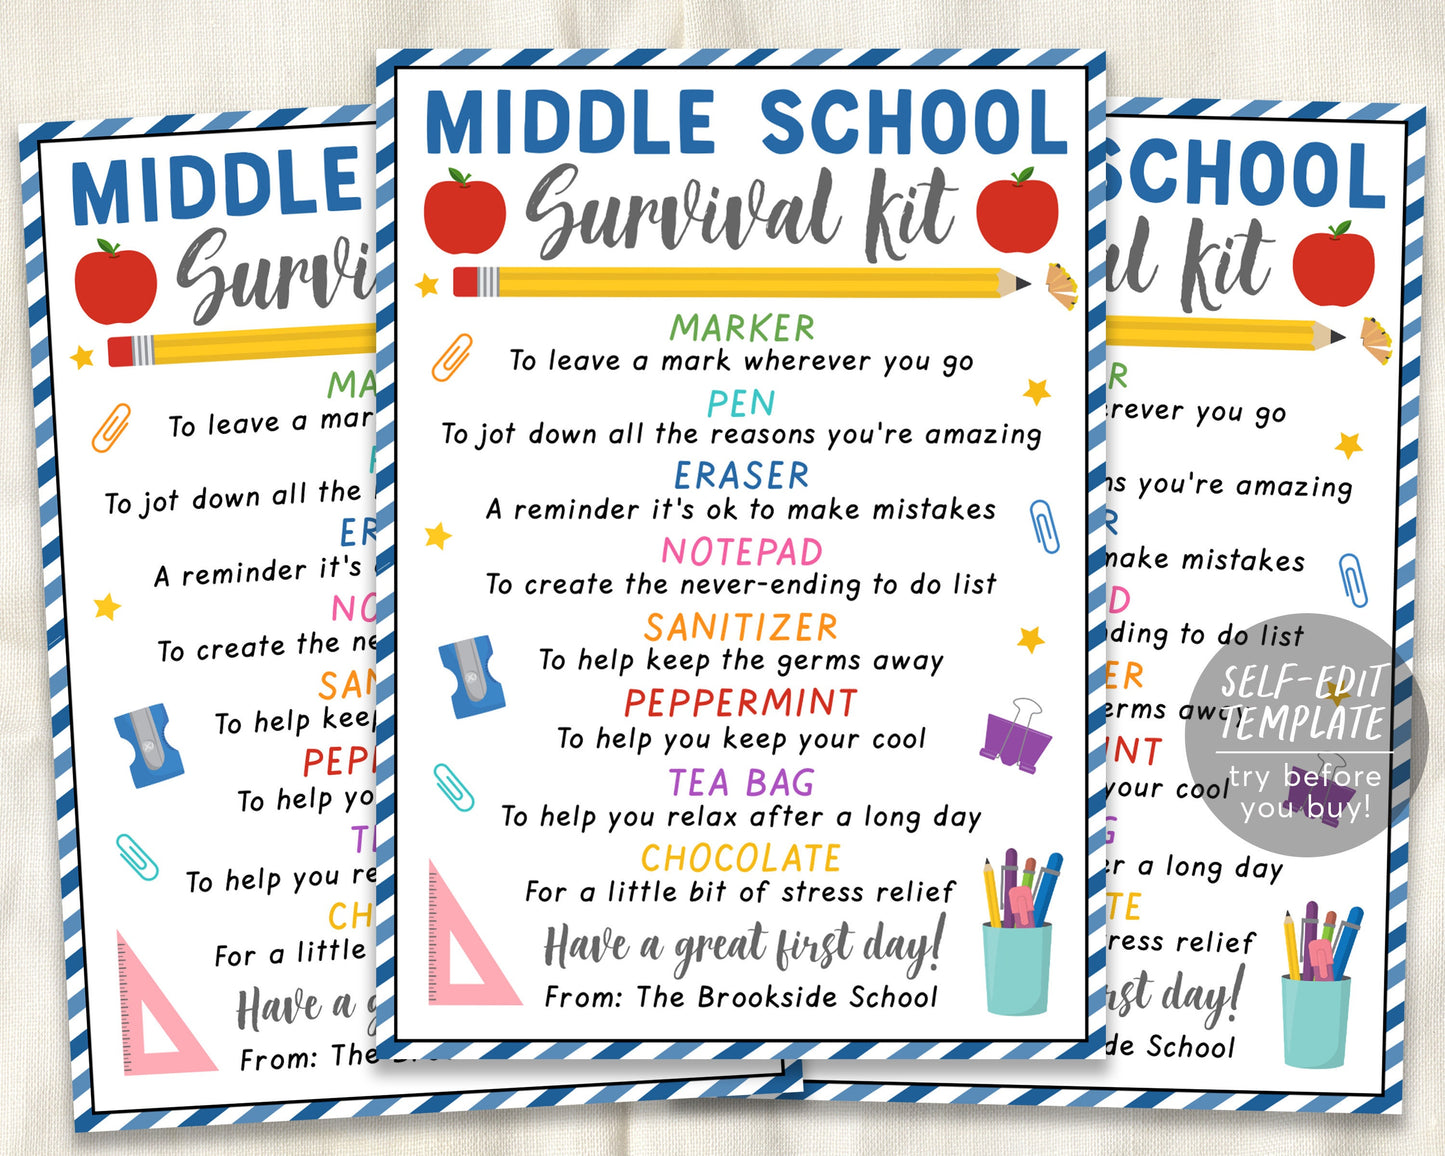 MIDDLE SCHOOL
Survival kit
MARKER
To leave a mark wherever you go
PEN
To jot down all the reasons you're amazing
ERASER
A reminder it's ok to make mistakes
NOTEPAD
To create the never-ending to do list
SANITIZER
To help keep the germs away
PEPPERMINT
To help you keep your cool
TEA BAG
To help you relax after a long day
CHOCOLATE
For a little bit of stress relief
Have a great first day!
From: The Brookside School
MIDDLE
Survi
MA
To leave a mar
To jot down all the
ER
A reminder it's
NO
To create the ne
SAN
To help keep
PEPP
To help yo
TE
To help you re
CH
For a little
Have a g
From: The Bro
SCHOOL
al kit
R
erever you go
ns you're amazing
R
make mistakes
D
nding to do list
ER
erms away
INT
your cool
G
er a long day
TE
tress relief
rst day!
de School
SELF-EDIT
TEMPLATE
try before
you buy!